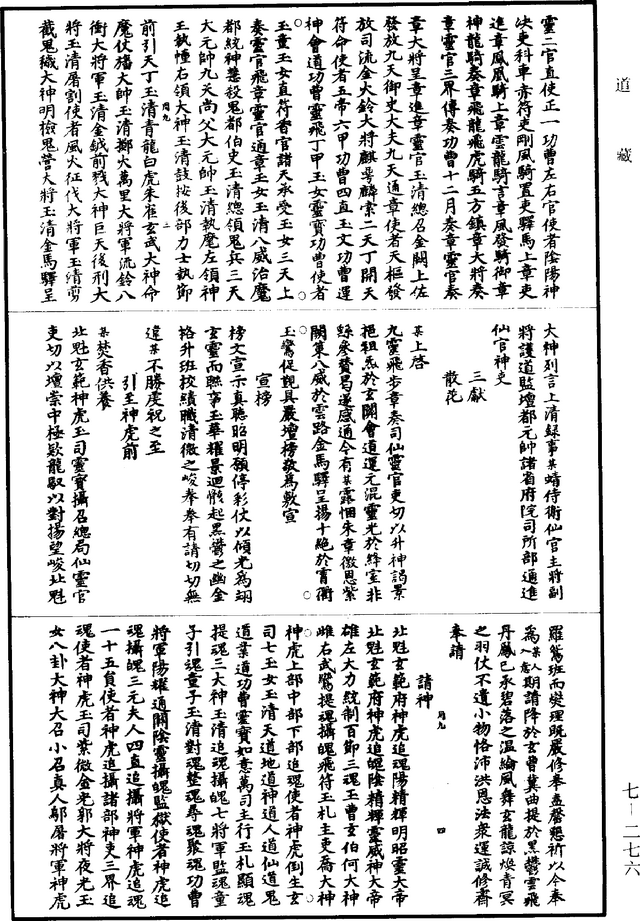 道藏
靈二官直使正一功曹左右官使者陰陽神
決吏科車赤符吏剛風騎置吏驛馬上章吏
進章鳳凰騎上章雲龍騎言章風發騎御章
神龍騎奏章飛龍飛虎騎五方鎮章大將奏
章靈官三界傳奏功曹十二月奏章靈官奏
章大將呈章進章靈官玉清總召金闕上佐
發放九天御史大夫九天通章使者天樞發
放司流金火鈴大將麒麟二天丁開天
符命使者五帝六甲功曹四直玉文功曹運
神會道功曹靈飛丁甲玉女靈寶功曹使者
玉童玉女直符香官諸天承受玉女三天上
奏靈官飛章靈官通章玉女玉清八威治魔
都統神慧殺鬼都伯吏玉清總領鬼兵三天
大元帥九天尚父大元帥玉清執魔左領神
王執幢右領大神玉清鼓按後部力士執節
前引天丁玉清青龍白虎朱雀玄武大神命
魔仗旛大帥玉清擲火萬里大將軍流鈴八
衝大將軍玉清金鉞前戮大神巨天後刑大
將玉清屠割使者風火征伐大將軍玉清剪
截鬼穢大神明檢鬼營大將玉清金馬驛呈
大神列言上清録事某蜻侍衛仙官主將副
將護道監壇都元帥諸省府院司所部通進
仙官神吏
三獻
散花
某上啓
九靈飛步章奏司仙靈官吏切以升神謁景
抱粗炁於玄關會道運元混靈光於絳室非
繇參贊曷遂感通今有某露悃朱章徼恩紫
闕策八威於雲路金馬驛呈揚十絶於霄衢
玉鸞促覲具嚴壇榜敬爲敷宣
宣榜
榜文宣示真聽昭明願停彩仗以傾光爲翊
玄靈而聯事玉華耀景迴骸起黑鬱之幽金
格升班按績職清微之峻拳拳有請切切無
違某不勝虔祝之至
引至神虎前
某焚香供養
北魁玄範神虎玉司靈寶攝召總局仙靈官
吏切以壇崇中極欵龍馭以對揚望峻北魁
羅鴛班而爕理既嚴修奉盍罄懇祈以今奉
爲某人意期請降於玄曹冀曲提於黑鬱雲飛
丹鳳已承碧落之温綸風舞玄龍諒煥青冥
之羽仗不遺小物恪沛洪恩法衆運誠修齋
奉請
請神
北魁玄範府神虎追魂陽精輝明昭靈大帝
北魁玄範府神虎追魄陰精輝靈威神大帝
雄左大力統制百節三魂玉曹玄伯何大神
雌右武鸞提魂攝魄飛符玉札主吏喬大神
神虎上部中部下部追魂使者神虎倒生玄
司七玉女玉清天道地道神道人道仙道鬼
道業道功曹靈寶如意萬司主行玉札顯魂
提魂三大神玉清追魂攝魄七將軍監魂童
子引魂童子玉清對魂整魂尋魂聚魂功曹
將軍陽耀通關陰靈攝魄監獄使者神虎追
魂攝魄三元夫人四直追攝將軍神虎追魂
一十五員使者神虎追攝諸部神吏三界追
魂使者神虎玉司紫微金光郭大將夜光玉
女八卦大神大召小召真人鄔屠將軍神虎
七—二七六